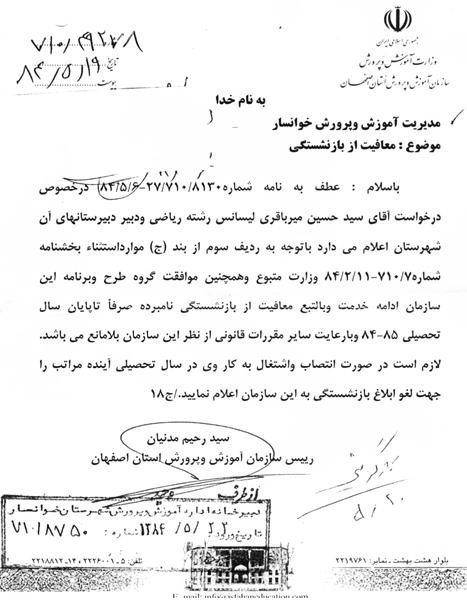 جمهوری اسلامی ایران
وزارت آموزش و پرورش
سازمان آموزش و پرورش استان اصفهان
تاریخ ۸۴/۵/۱۹
پیوست
به نام خدا
مدیریت آموزش وپرورش خوانسار
موضوع : معافیت از بازنشستگی
باسلام : عطف به نامه شماره۲۷/۷۱۰/۸۱۳۰-۸۴/۵/۶ درخصوص
درخواست آقای سید حسین میرباقری لیسانس رشته ریاضی ودبیر دبیرستانهای آن
شهرستان اعلام می دارد باتوجه به ردیف سوم از بند (ج) موارداستثناء بخشنامه
شماره۷۱۰/۷-۸۴/۲/۱۱ وزارت متبوع وهمچنین موافقت گروه طرح وبرنامه این
سازمان ادامه خدمت وبالتبع معافیت از بازنشستگی نامبرده صرفاً تاپایان سال
تحصیلی ۸۵-۸۴ وبارعایت سایر مقررات قانونی از نظر این سازمان بلامانع می باشد.
لازم است در صورت انتصاب واشتغال به کار وی در سال تحصیلی آینده مراتب را
جهت لغو ابلاغ بازنشستگی به این سازمان اعلام نمایید./ج۱۸
سید رحیم مدنیان
رییس سازمان آموزش وپرورش استان اصفهان
از طرف
دبیرخانه اداره آموزش و پرورش شهرستان خوانسار
تاریخ ورود: ۱۳۸۴/۵/۲۲ شماره: ۷۱۰/۸۷۵۰
بلوار هشت بهشت - نمابر: ۲۲۱۹۷۶۱
تلفن: ۵-۲۲۲۶۰۰۱ ۱۴-۲۲۱۸۸۱۲
E_mail: info@isfahaneducation.com